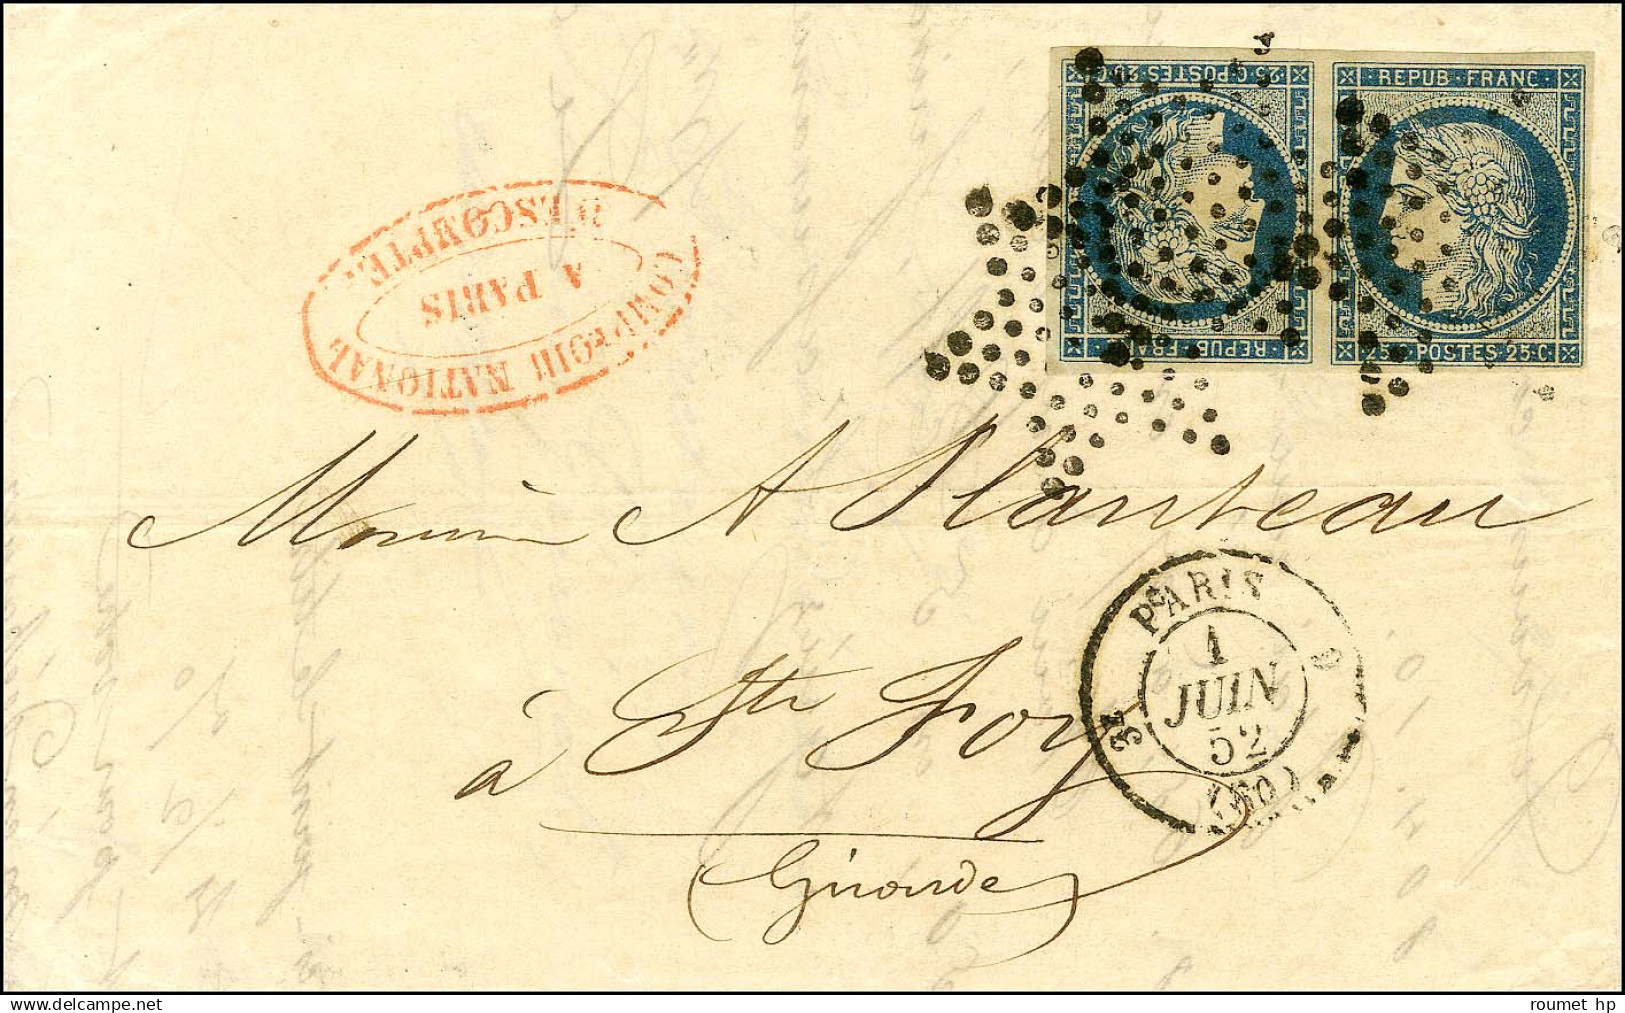 25·C·POSTES·25·C
REPUB·FRANC
REPUB·FRANC·
25·C·POSTES·25·C·
COMPTOIR NATIONAL
D'ESCOMPTE.
A PARIS
Monsieur A Planteau
à Ste Foy
(Gironde)
PARIS
1
JUIN
52
(60)
roumet hp